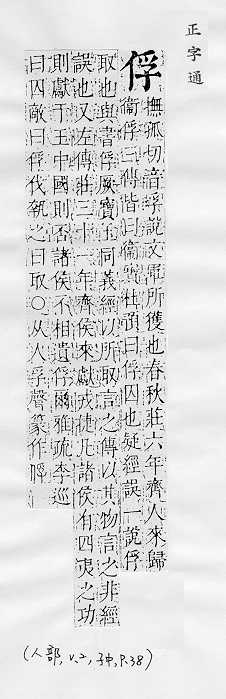 正字通
俘
撫孤切音說文軍所獲也春秋莊六年齊人來歸
衞俘三傳皆曰衞寶杜預曰俘囚也疑經誤一說俘
取也與書俘厥寶玉同義經以所取言之傳以其物言之非經
誤也又左傳莊三十一年齊侯來獻戎捷凡諸侯有四夷之功
則獻于王中國則否諸侯不相遺俘爾雅疏李巡
曰囚敵曰俘伐執之曰取○从人孚聲篆作
(人部, v.2, 子中, p.38)